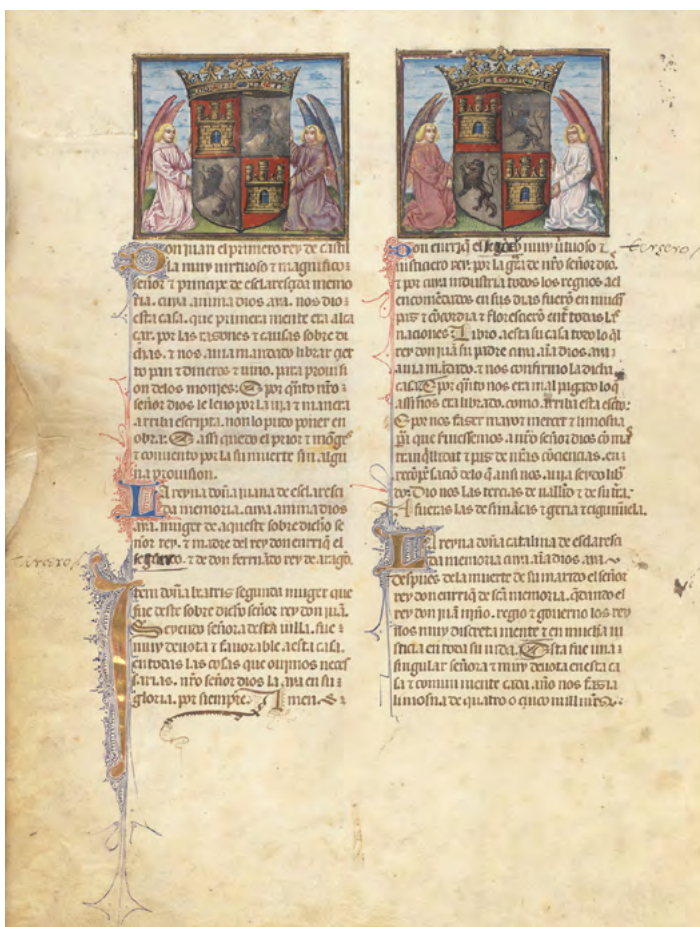 Don iuan el primero rey de castil
la muy uirtuoso ⁊ magnifico
señor ⁊ principe de esclaresçida memo
ria. cuya anima dios aya. nos dio
esta casa. que primera mente era alca
çar. por las razones ⁊ causas sobre di
chas. ⁊ nos auia mandado librar çier
to pan ⁊ dineros ⁊ uino. para prouisi
on delos monies. E por qñto nr̃o
señor dios le leuo por la uia ⁊ manera
arriba escripta. non lo pudo poner en
obra. E assi quedo el prior ⁊ mõges
⁊ conuento por la su muerte sin algu
na prouision.
La reyna doña iuana de esclaresci
da memoria. cuya anima dios
aya. muger de aqueste sobre dicho se
ñor rey. ⁊ madre del rey don enrriq̃ el
⁊ de don fernãdo rey de aragõ.
tercero
Item doña beatris segunda muger que
fue deste sobre dicho señor rey don iuã.
Seyendo señora desta uilla. fue
muy deuota ⁊ fauorable a esta casa.
en todas las cosas que ouimos neçes
sarias. nr̃o señor dios la aya en su
gloria. por siempre. Amen.
Don enrriq̃ el muy uirtuoso ⁊
tercero
iusticiero rey. por la gr̃a de nr̃o señor dios.
⁊ por cuya industria todos los regnos a el
encomẽdados en sus dias fuerõ en mucha
paz ⁊ cõcordia ⁊ floresçierõ entr̃ todas las
naciones. Libro a esta su casa todo lo q̃l
rey don iuã su padre cuya aĩa dios aya
auia mãdado. ⁊ nos confirmo la dicha
casa. E por qñto nos era mal pagado lo q̃
assi nos era librado. como arriba esta esc̃to.
E por nos faser mayor merçet ⁊ limosna
que fuessemos a nr̃o señor dios cõ mas
tranquilidat ⁊ paz de nr̃as cõciencias. en
delo q̃ ansi nos auia seydo lib
do. Dio nos las terçias de ualliđ ⁊ de su tr̃ra.
A fueras las de simãcas ⁊ geria ⁊ çigunuela.
La reyna doña catalina de esclaresci
da memoria cuya aĩa dios aya.
despues dela muerte de su marido el señor
rey don enrriq̃ de sc̃ã memoria. quando el
rey don iuã niño. regio ⁊ gouerno los rey
nos muy discreta mente ⁊ en mucha iu
sticia en toda su uida. Esta fue una
singular señora ⁊ muy deuota en esta ca
sa ⁊ comun mente cada año nos fasia
limosna de quatro o çinco mill mr̃s.